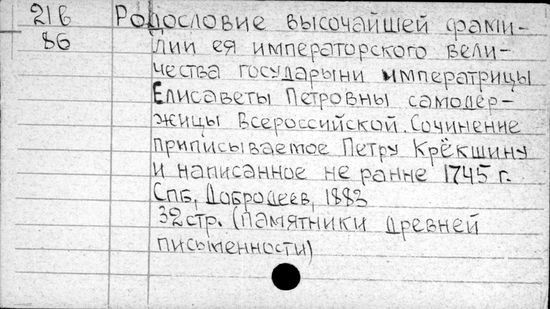 216 Родословие высочайшей фами-
86 лии ея императорского вели-
чества государыни императрицы
Елисаветы Петровны самодер-
жицы Всероссийской. Сочинение
приписываемое Петру Крёкшину
и написанное не ранне 1745 г.
СПб, Добродеев, 1883
32 стр. (Памятники древней
письменности)